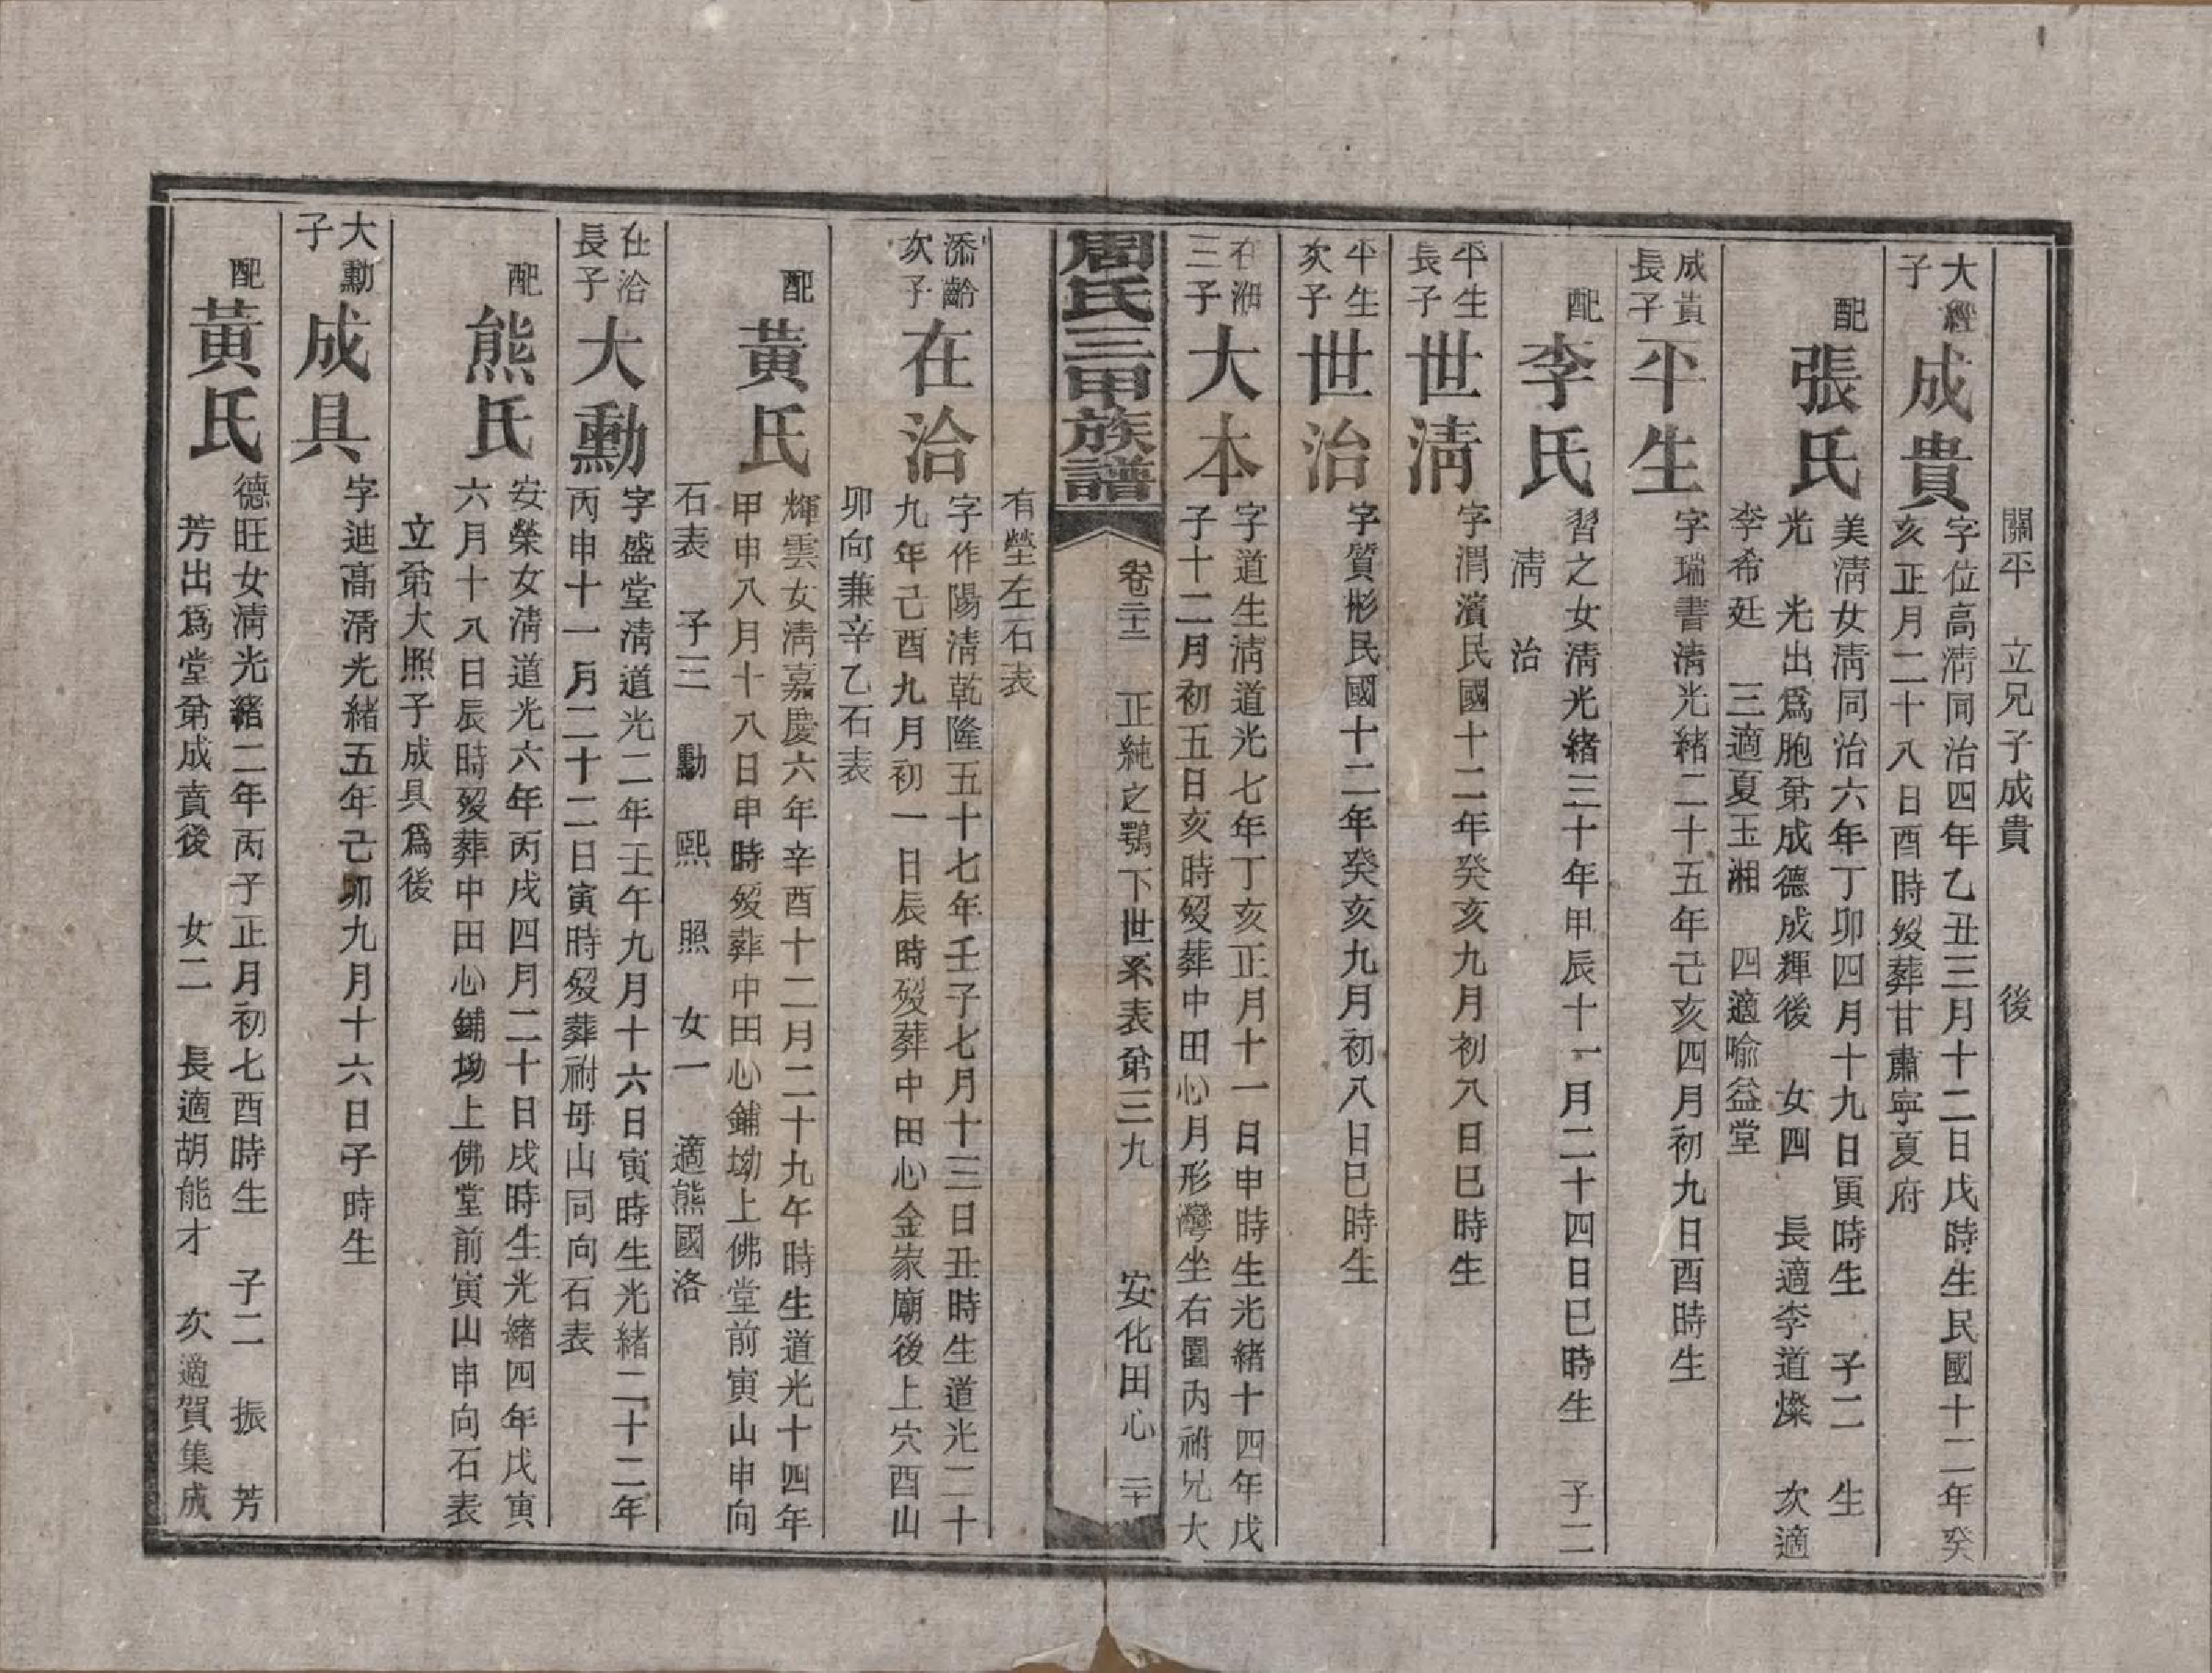 關平　立兄子成貴　　　後
大經子
成貴
字位高淸同治四年乙丑三月十二日戌時生民國十二年癸
亥正月二十八日酉時歿葬甘肅寧夏府
配
張氏
美淸女淸同治六年丁卯四月十九日寅時生　子二　生
光　光出爲胞弟成德成輝後　女四　長適李道燦　次適
李希廷　三適夏玉湘　四適喻益堂
成貴長子
平生
字瑞書淸光緒二十五年己亥四月初九日酉時生
配
李氏
習之女淸光緒三十年甲辰十一月二十四日巳時生　子二
淸　治
平生長子
世淸
字渭濱民國十二年癸亥九月初八日巳時生
平生次子
世治
字質彬民國十二年癸亥九月初八日巳時生
在湘三子
大本
字道生淸道光七年丁亥正月十一日申時生光緒十四年戊
子十二月初五日亥時歿葬中田心月形灣坐右園內祔兄大
周氏三甲族譜
卷二十二　正純之鶚下世系表弟三九　　安化田心　二十
有塋左石表
添齡次子
在洽
字作陽淸乾隆五十七年壬子七月十三日丑時生道光二十
九年己酉九月初一日辰時歿葬中田心金家廟後上穴酉山
卯向兼辛乙石表
配
黃氏
輝雲女淸嘉慶六年辛酉十二月二十九午時生道光十四年
甲申八月十八日申時歿葬中田心鋪坳上佛堂前寅山申向
石表　子三　勳　熙　照　女一　適熊國洛
在洽長子
大勳
字盛堂淸道光二年壬午九月十六日寅時生光緒二十二年
丙申十一月二十二日寅時歿葬祔母山同向石表
配
熊氏
安榮女淸道光六年丙戌四月二十日戌時生光緒四年戊寅
六月十八日辰時歿葬中田心鋪坳上佛堂前寅山申向石表
立弟大照子成具爲後
大勳子
成具
字迪高淸光緒五年己卯九月十六日子時生
配
黃氏
德旺女淸光緒二年丙子正月初七酉時生　子二　振　芳
芳出爲堂弟成賁後　女二　長適胡能才　次適賀集成